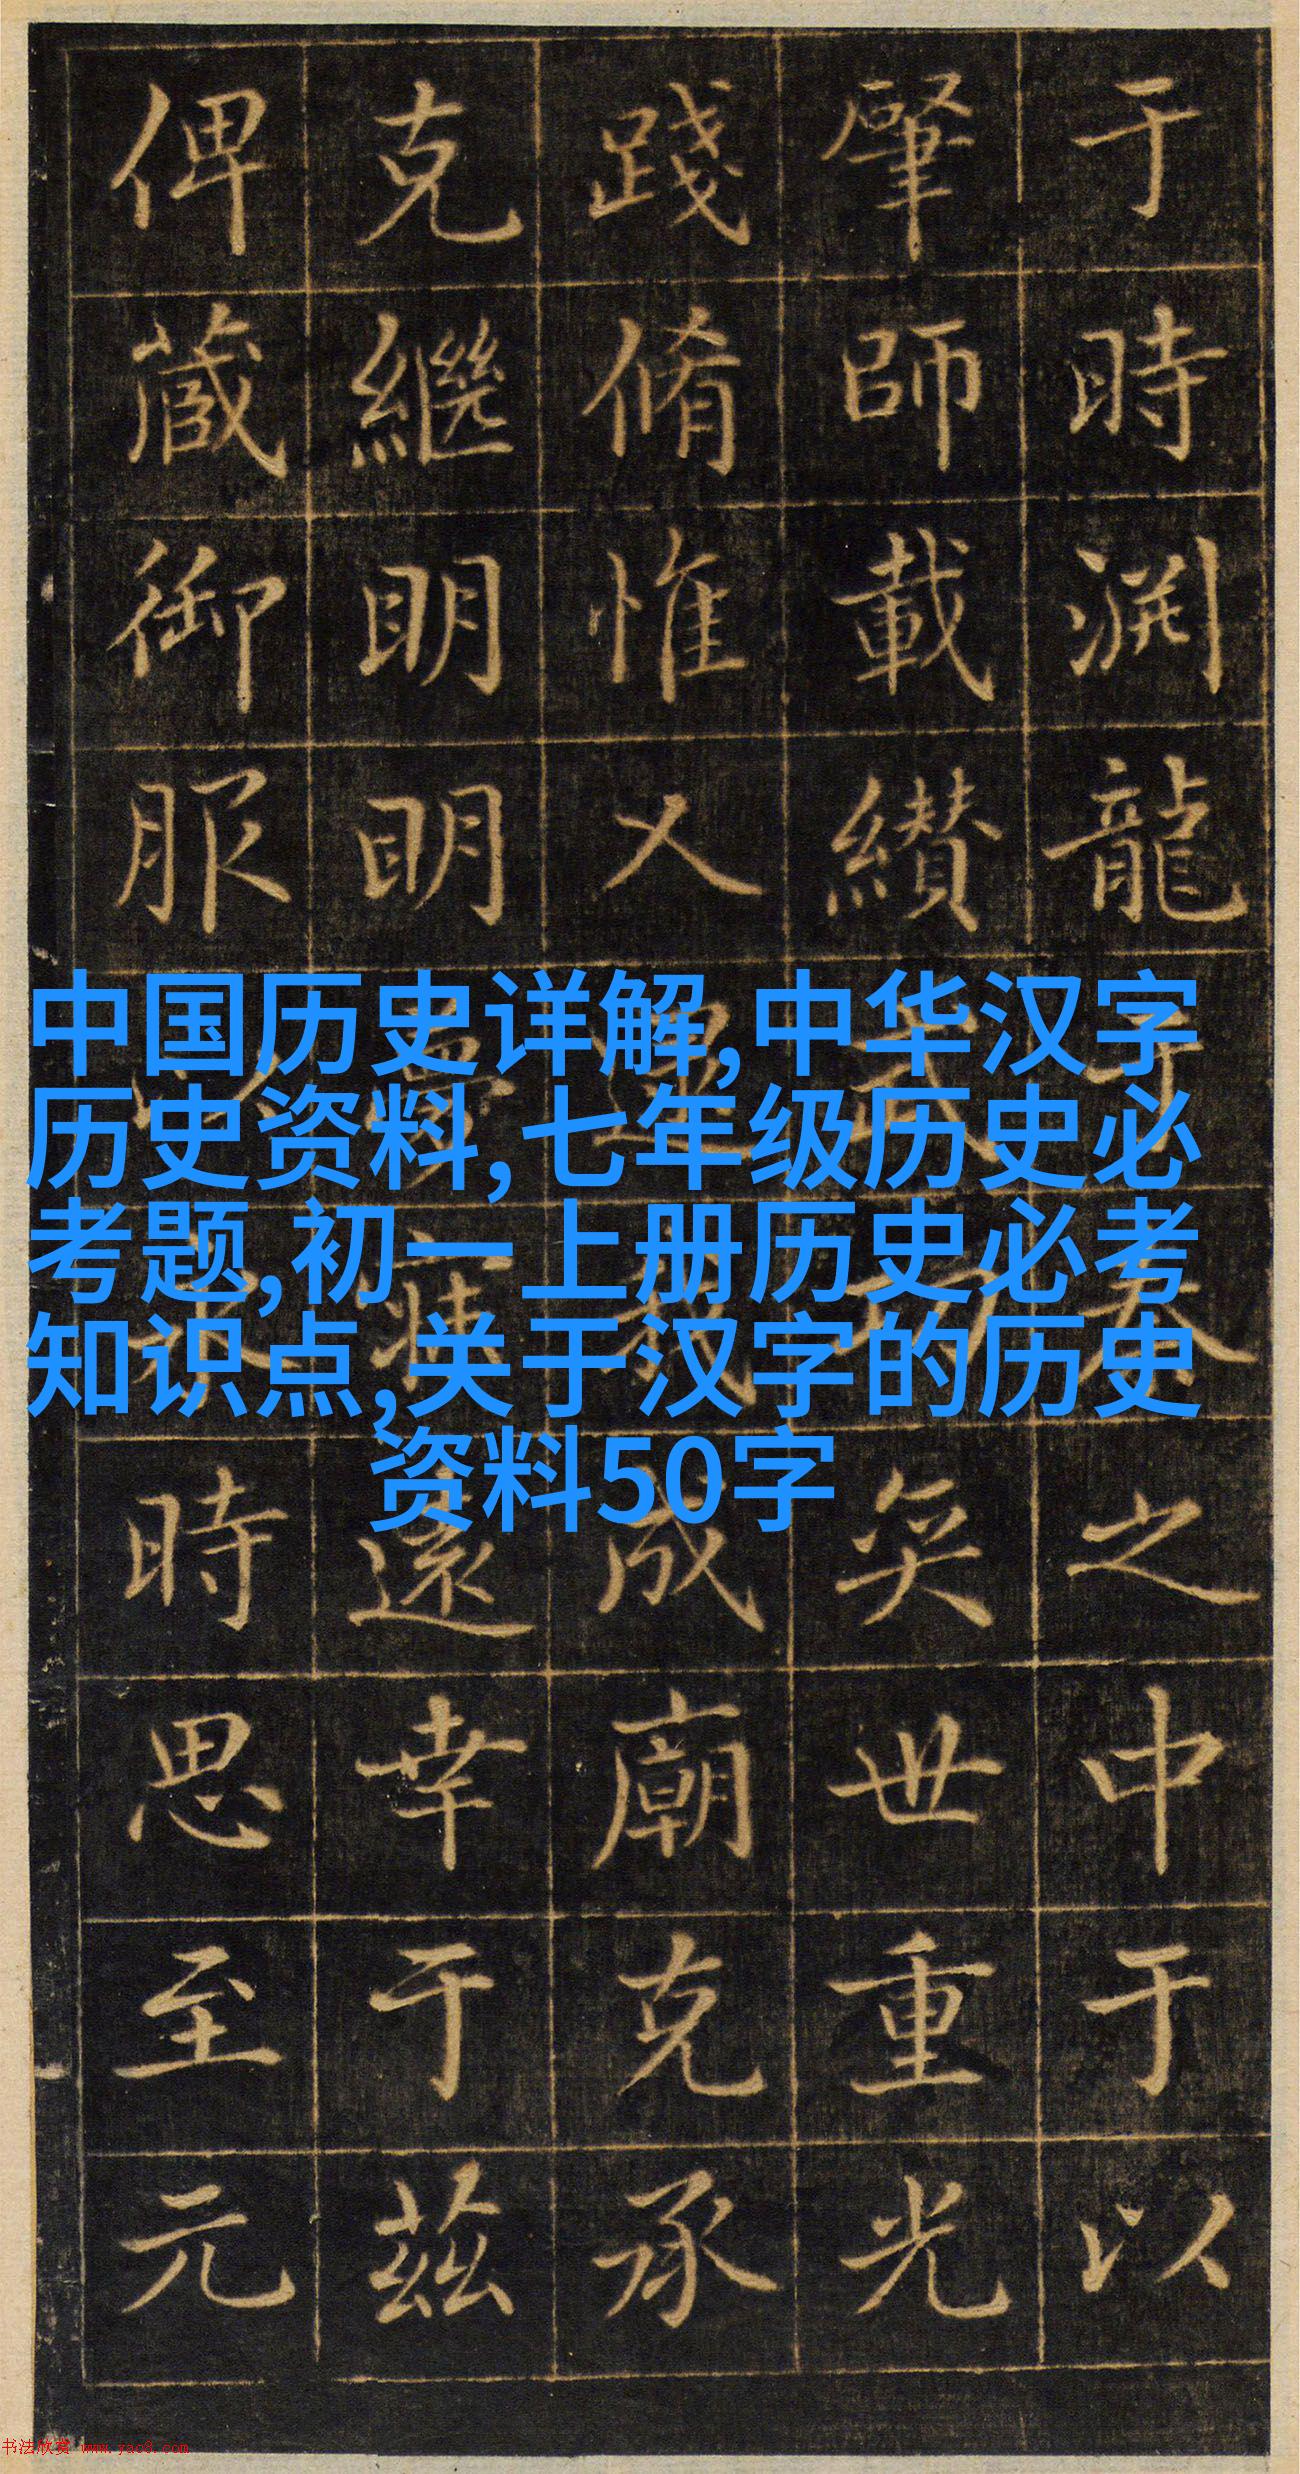 于時渊龍之中于以
肇師載纘奕世重光
踐脩惟人成廟克承
克繼明明遠幸于茲
俾蕆御服時思至元
中国历史详解,中华汉字
历史资料,七年级历史必
考题,初一上册历史必考
知识点,关于汉字的历史
资料50字
书法欣赏 www.yac8.com